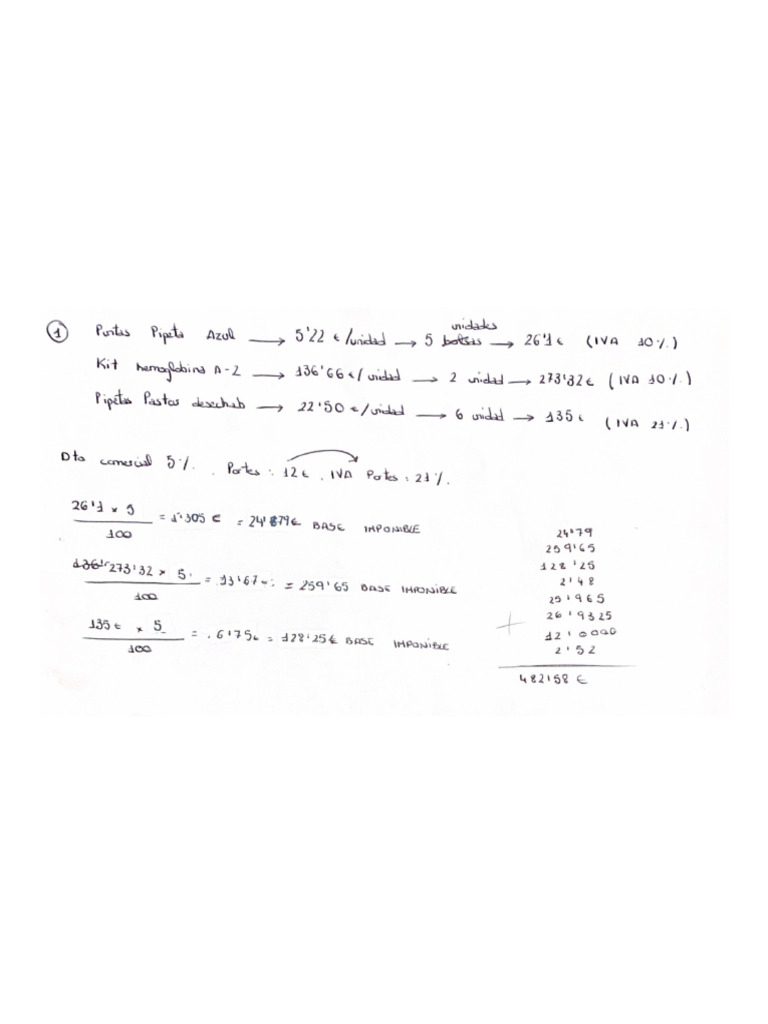 1 Puntas Pipeta Azul → 5'22 €/unidad → 5 bolsas unidades → 26'1 € (IVA 10%)
Kit hemoglobina A-2 → 136'66 €/unidad → 2 unidad → 273'32 € (IVA 10%)
Pipetas Pastor desechab → 22'50 €/unidad → 6 unidad → 135 € (IVA 21%)
Dto comercial 5%. Portes: 12 €. IVA Portes: 21%.
26'1 x 5
100
= 1'305 € = 24'79 € BASE IMPONIBLE
136' 273'32 x 5
100
= 13'67 = 259'65 BASE IMPONIBLE
135 € x 5
100
= 6'75 € = 128'25 € BASE IMPONIBLE
24'79
259'65
128'25
2'48
25'965
26'9325
+ 12'0000
2'52
482'58 €